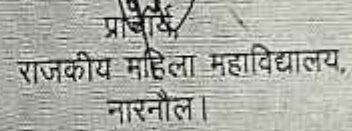 प्राचार्य,
राजकीय महिला महाविद्यालय,
नारनौल।